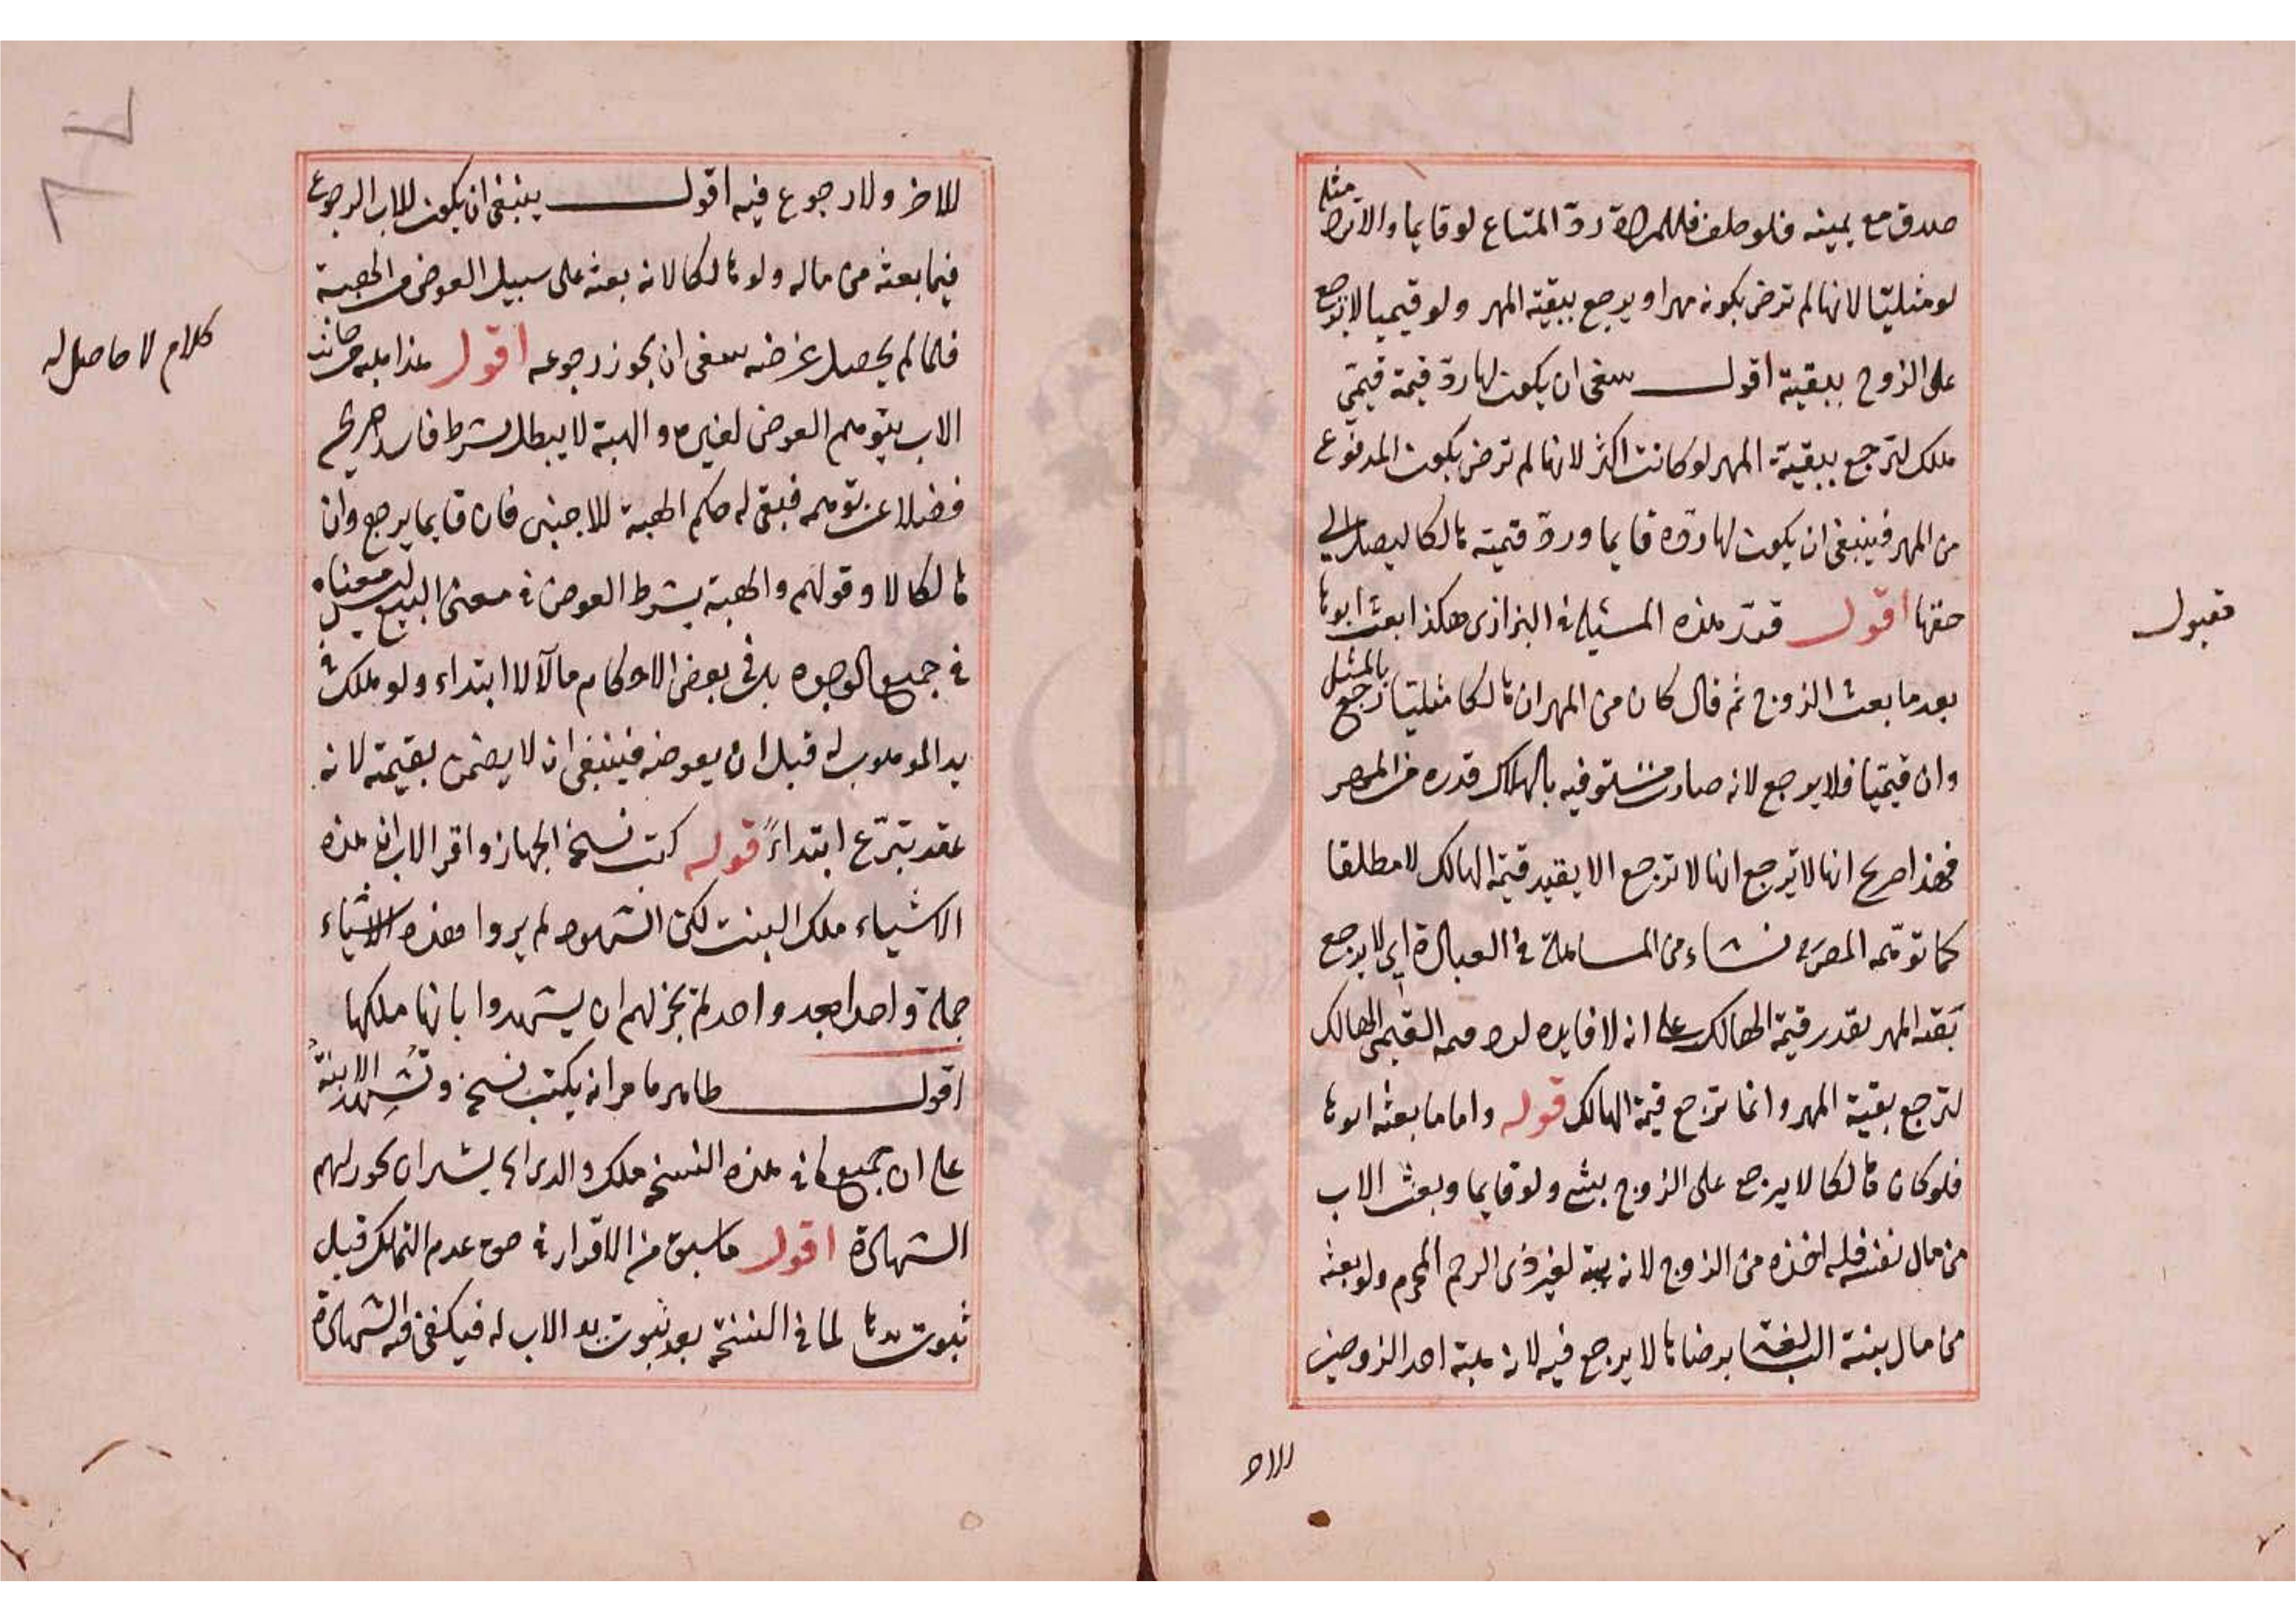 صدق مع يمينه فلو حلف فللمراة ردّ المتاع لو قايما والا ترد مثله
لو مثليّا لانها لم ترض بكونه مهرا ويرجع ببقية المهر ولو قيميا لا ترجع
على الزوج ببقية اقول ينبغى ان يكون لها ردّ قيمة قيمتي
هلك لترجع ببقية المهر لو كانت اكثر لانها لم ترض بكون المدفوع
من المهر فينبغى ان يكون لها ردّه قايما وردّ قيمته هالكا ليصل الي
حقها اقول قدّر هذه المسئلة فى البزازى هكذا بعث ابوها
مقبول
بعد ما بعث الزوج ثم قال كان من المهر ان هالكا مثليا ترجع بالمثل
وان قيميّا فلا يرجع لانه صارت مستوفيه بالهلاك قدره من المهر
فهذا صريح انها لا ترجع انها لا ترجع الا بقيد قيمة الهالك لا مطلقا
كما توهّمه المصره نشاء من المساهلة فى العبارة اي لا يرجع
بقية المهر بقدر قيمة الهالك على انه لا فايده لرد قيمة القيمى الهالك
لترجع بقية المهر وانما ترجع قيمة الهالك قوله واما ما بعثه ابوها
فلو كان هالكا لا يرجع على الزوج بشئ ولو قايما وبعث الاب
من مال نفسه فله اخذه من الزوج لانه هبة لغير ذى الرحم المحرم ولو بعثه
من مال بنته البالغة برضاها لا يرجع فيه لانه هبة احد الزوجين
للاخر
للاخر ولا رجوع فيه اقول ينبغى ان يكون للاب الرجوع
فيما بعثه من ماله ولو هالكا لانه بعثه على سبيل العوض من الهبة
فلما لم يحصل غرضه ينبغى ان يجوز رجوعه اقول هذا هبة من جانب
كلام لا حاصل له
الاب بتوهم العوض لغيره والهبة لا يبطل بشرط فاسد صريح
فضلا عن توهمه فبقى له حكم الهبة للاجنبى فان قايما يرجع وان
هالكا لا وقولهم والهبة بشرط العوض فى معنى البيع ليس معناه
فى جميع الوجوه بل فى بعض الاحكام مآلا لا ابتداء ولو هلك فى
يد الموهوب له قبل ان يعوضه فينبغى ان لا يضمن بقيمته لانه
عقد تبرّع ابتداءً قوله كتب نسخة الجهاز واقر الاب ان هذه
الاشياء ملك البنت لكن الشهود لم يروا هذه الاشياء
جملة واحدا بعد واحد لم يجز لهم ان يشهدوا بانها ملكها
اقول ظاهر ما مر انه يكتب نسخة وتشهد الابنة
على ان جميع ما فى هذه النسخة ملك والدى اى يشير ان يجوز لهم
الشهادة اقول ما سبق من الاقرار فى حق عدم التملك قبل
ثبوت يدها لما فى النسخة بعد ثبوت يد الاب له فيكفى فيه الشهادة